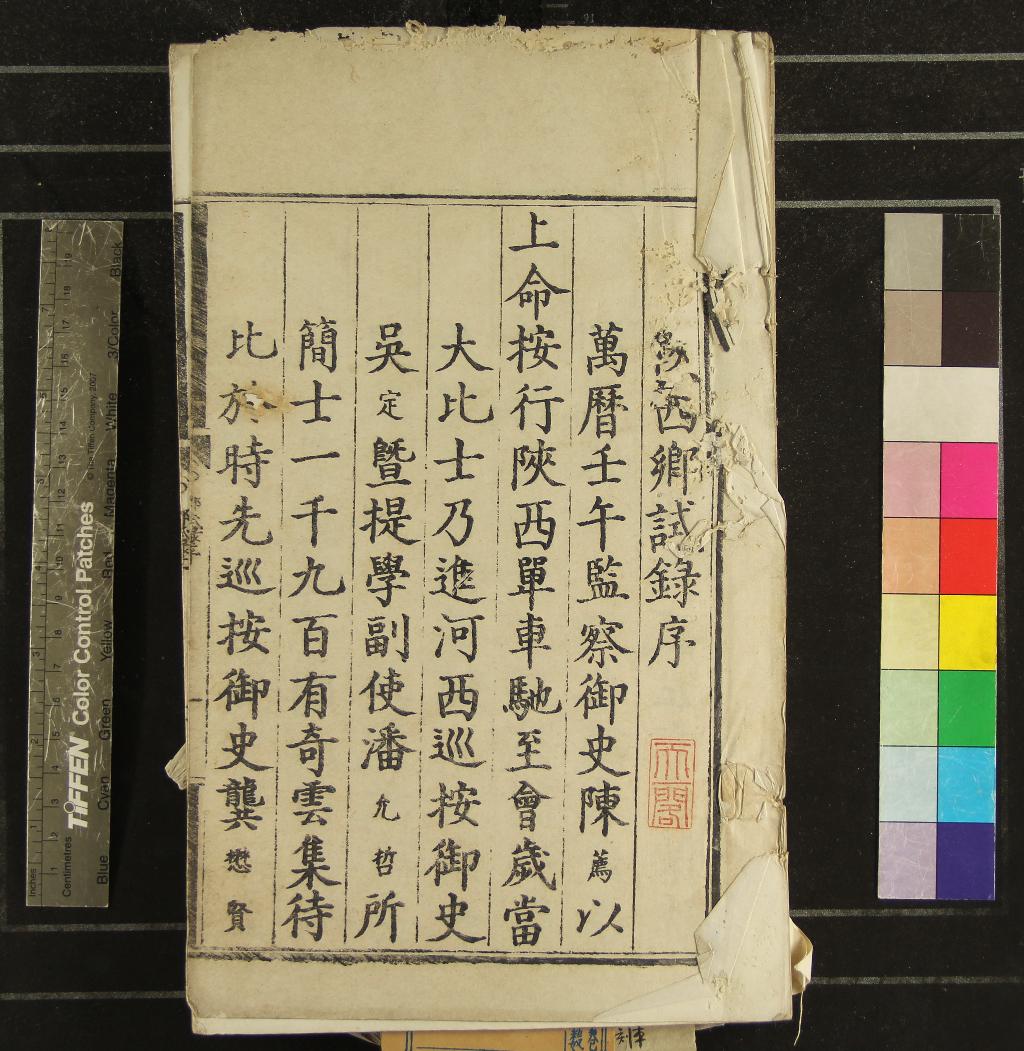 西鄉試錄序
天一閣
萬曆壬午監察御史陳薦以
上命按行陝西單車馳至會歲當
大比士乃進河西巡按御史
吳定曁提學副使潘允哲所
簡士一千九百有奇雲集待
比於時先巡按御史龔懋賢
TIFFEN Color Control Patches
© The Tiffen Company, 2007
Inches
Centimetres
Blue
Cyan
Green
Yellow
Red
Magenta
White
3/Color
Black